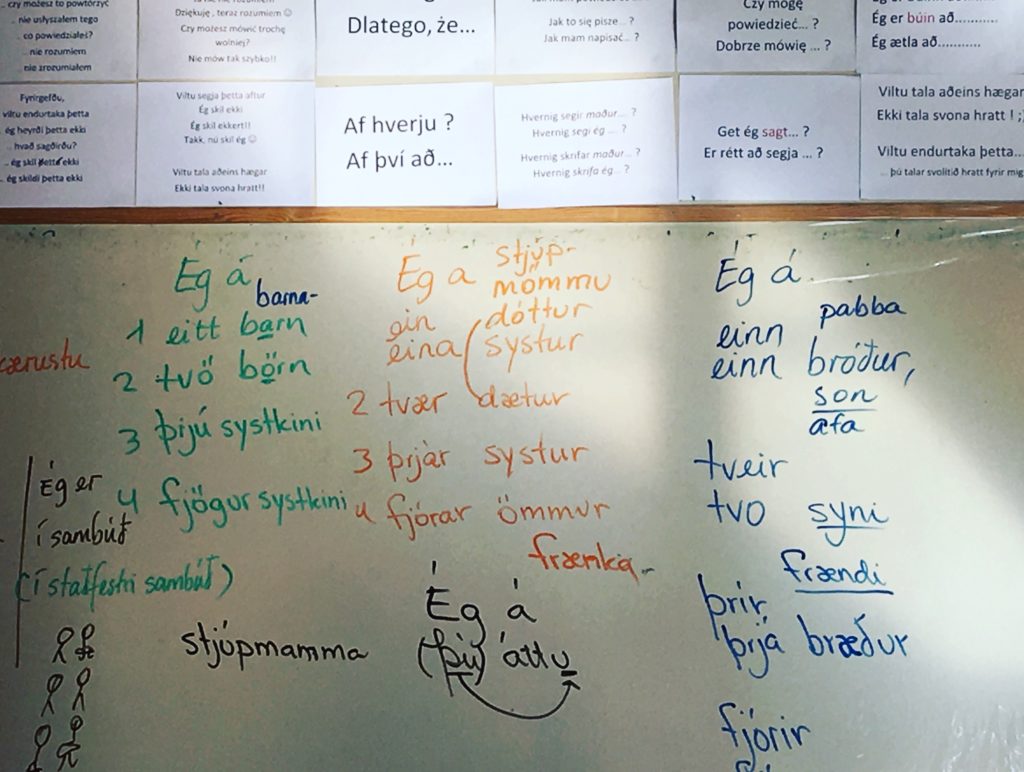 czy możesz to powtórzyć
.. nie usłyszałem tego
.. co powiedziałeś?
.. nie rozumiem
nie zrozumiałem
Dziękuję, teraz rozumiem ☺
Czy możesz mówić trochę
wolniej?
Nie mów tak szybko!!
Dlatego, że...
Jak to się pisze... ?
Jak mam napisać... ?
Czy mogę
powiedzieć... ?
Dobrze mówię ... ?
Ég er búin að...........
Ég ætla að...........
Fyrirgefðu,
viltu endurtaka þetta
ég heyrði þetta ekki
.. hvað sagðirðu?
.. ég skil þetta ekki
.. ég skildi þetta ekki
Viltu segja þetta aftur
Ég skil ekki
Ég skil ekkert!!
Takk, nú skil ég ☺
Viltu tala aðeins hægar
Ekki tala svona hratt!!
Af hverju ?
Af því að...
Hvernig segir maður... ?
Hvernig segi ég ... ?
Hvernig skrifar maður... ?
Hvernig skrifa ég... ?
Get ég sagt... ?
Er rétt að segja ... ?
Viltu tala aðeins hægar
Ekki tala svona hratt ! ;)
Viltu endurtaka þetta...
.. þú talar svolítið hratt fyrir mig
Ég á
barna-
1 eitt barn
2 tvö börn
3 þrjú systkini
4 fjögur systkini
ærustu
Ég er
í sambúð
(í staðfestri sambúð)
stjúpmamma
Ég á stjúp-
mömmu
ein dóttur
eina systur
2 tvær dætur
3 þrjár systur
4 fjórar ömmur
frænka
Ég á
(þú) áttu
Ég á
pabba
einn
einn bróður,
son
afa
tveir
tvo syni
frændi
þrír
þrjá bræður
fjórir